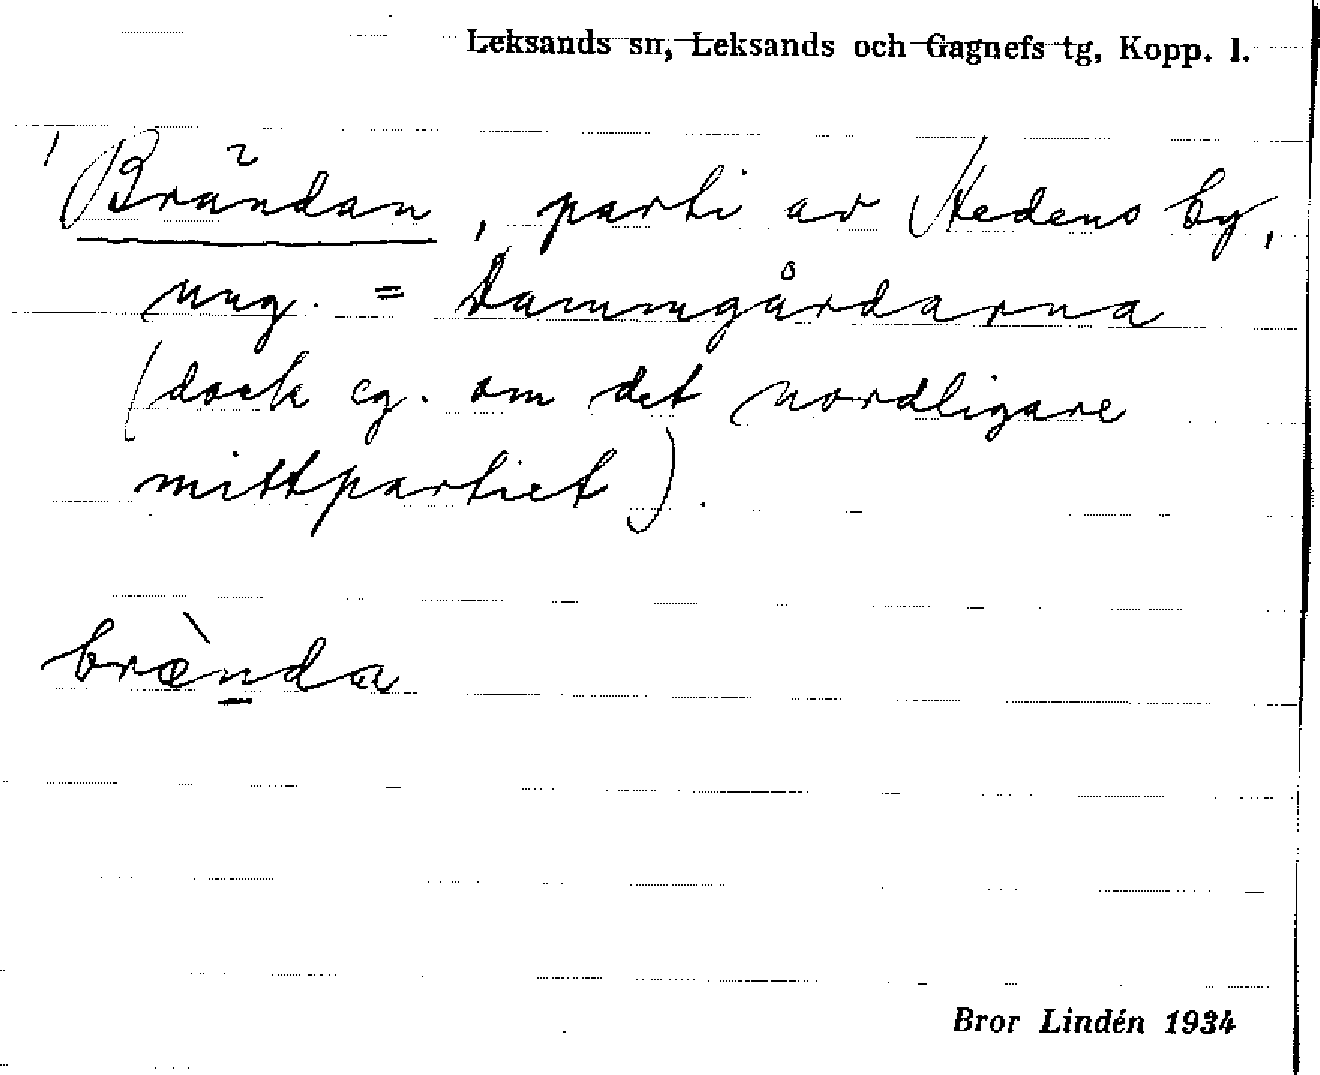 Leksands sn, Leksands och Gagnefs tg, Kopp. l.
Brändan, parti av Hedens by,
ung. = Dammgårdarna
(dock eg. om det nordligare
mittpartiet).
bræ̀nda
Bror Lindén 1934